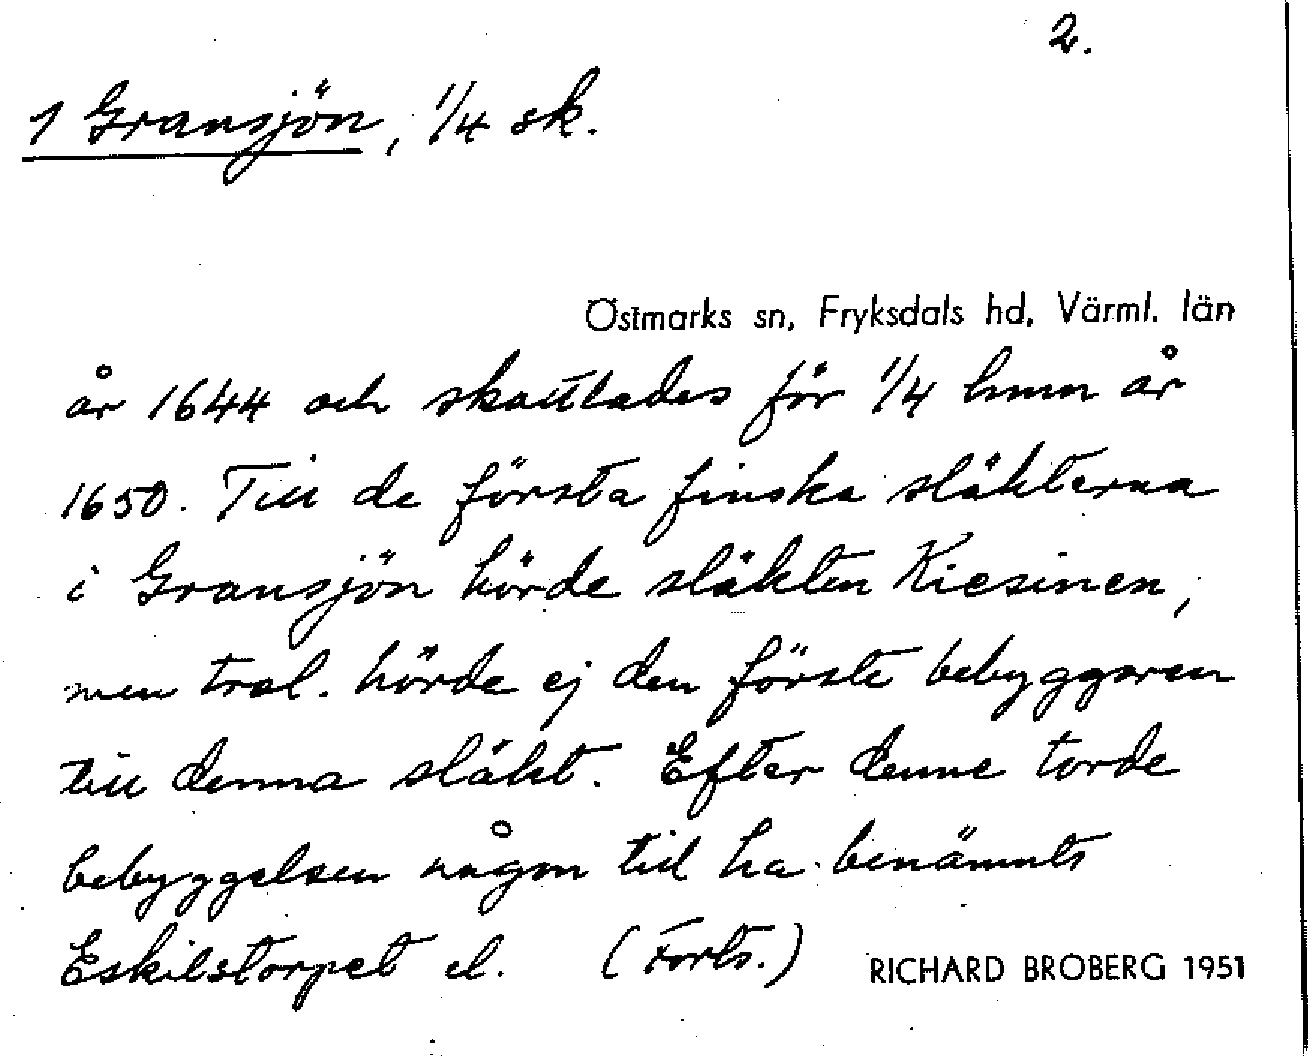 2.
1 Gransjön, 1/4 sk.
Östmarks sn, Fryksdals hd, Värml. län
år 1644 och skattlades för 1/4 hmn år
1650. Till de första finska släkterna
i Gransjön hörde släkten Kiesinen,
men trol. hörde ej den förste bebyggaren
till denna släkt. Efter denne torde
bebyggelsen någon tid ha benämnts
Eskilstorpet el. (Forts.)
RICHARD BROBERG 1951